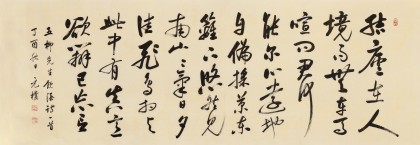 結廬在人
境而無車馬
喧問君何
能尔心遠地
自偏採菊東
籬下悠然見
南山々氣日夕
佳飛鳥相与
此中有真意
欲辯已忘言
五柳先生飲酒詩一首
丁酉秋日元